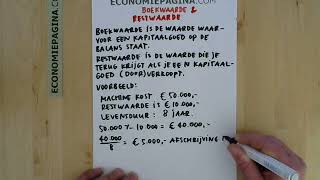 ECONOMIEPAGINA.COM
BOEKWAARDE &
RESTWAARDE
BOEKWAARDE IS DE WAARDE WAAR-
VOOR EEN KAPITAALGOED OP DE
BALANS STAAT.
RESTWAARDE IS DE WAARDE DIE JE
TERUG KRIJGT ALS JE EEN KAPITAAL-
GOED (DOOR)VERKOOPT.
VOORBEELD:
MACHINE KOST € 50.000,-
RESTWAARDE IS € 10.000,-
LEVENSDUUR: 8 JAAR.
50.000 - 10.000 = € 40.000,-
40.000 / 8 = € 5.000,- AFSCHRIJVING
ECONOMIEPAGINA.COM